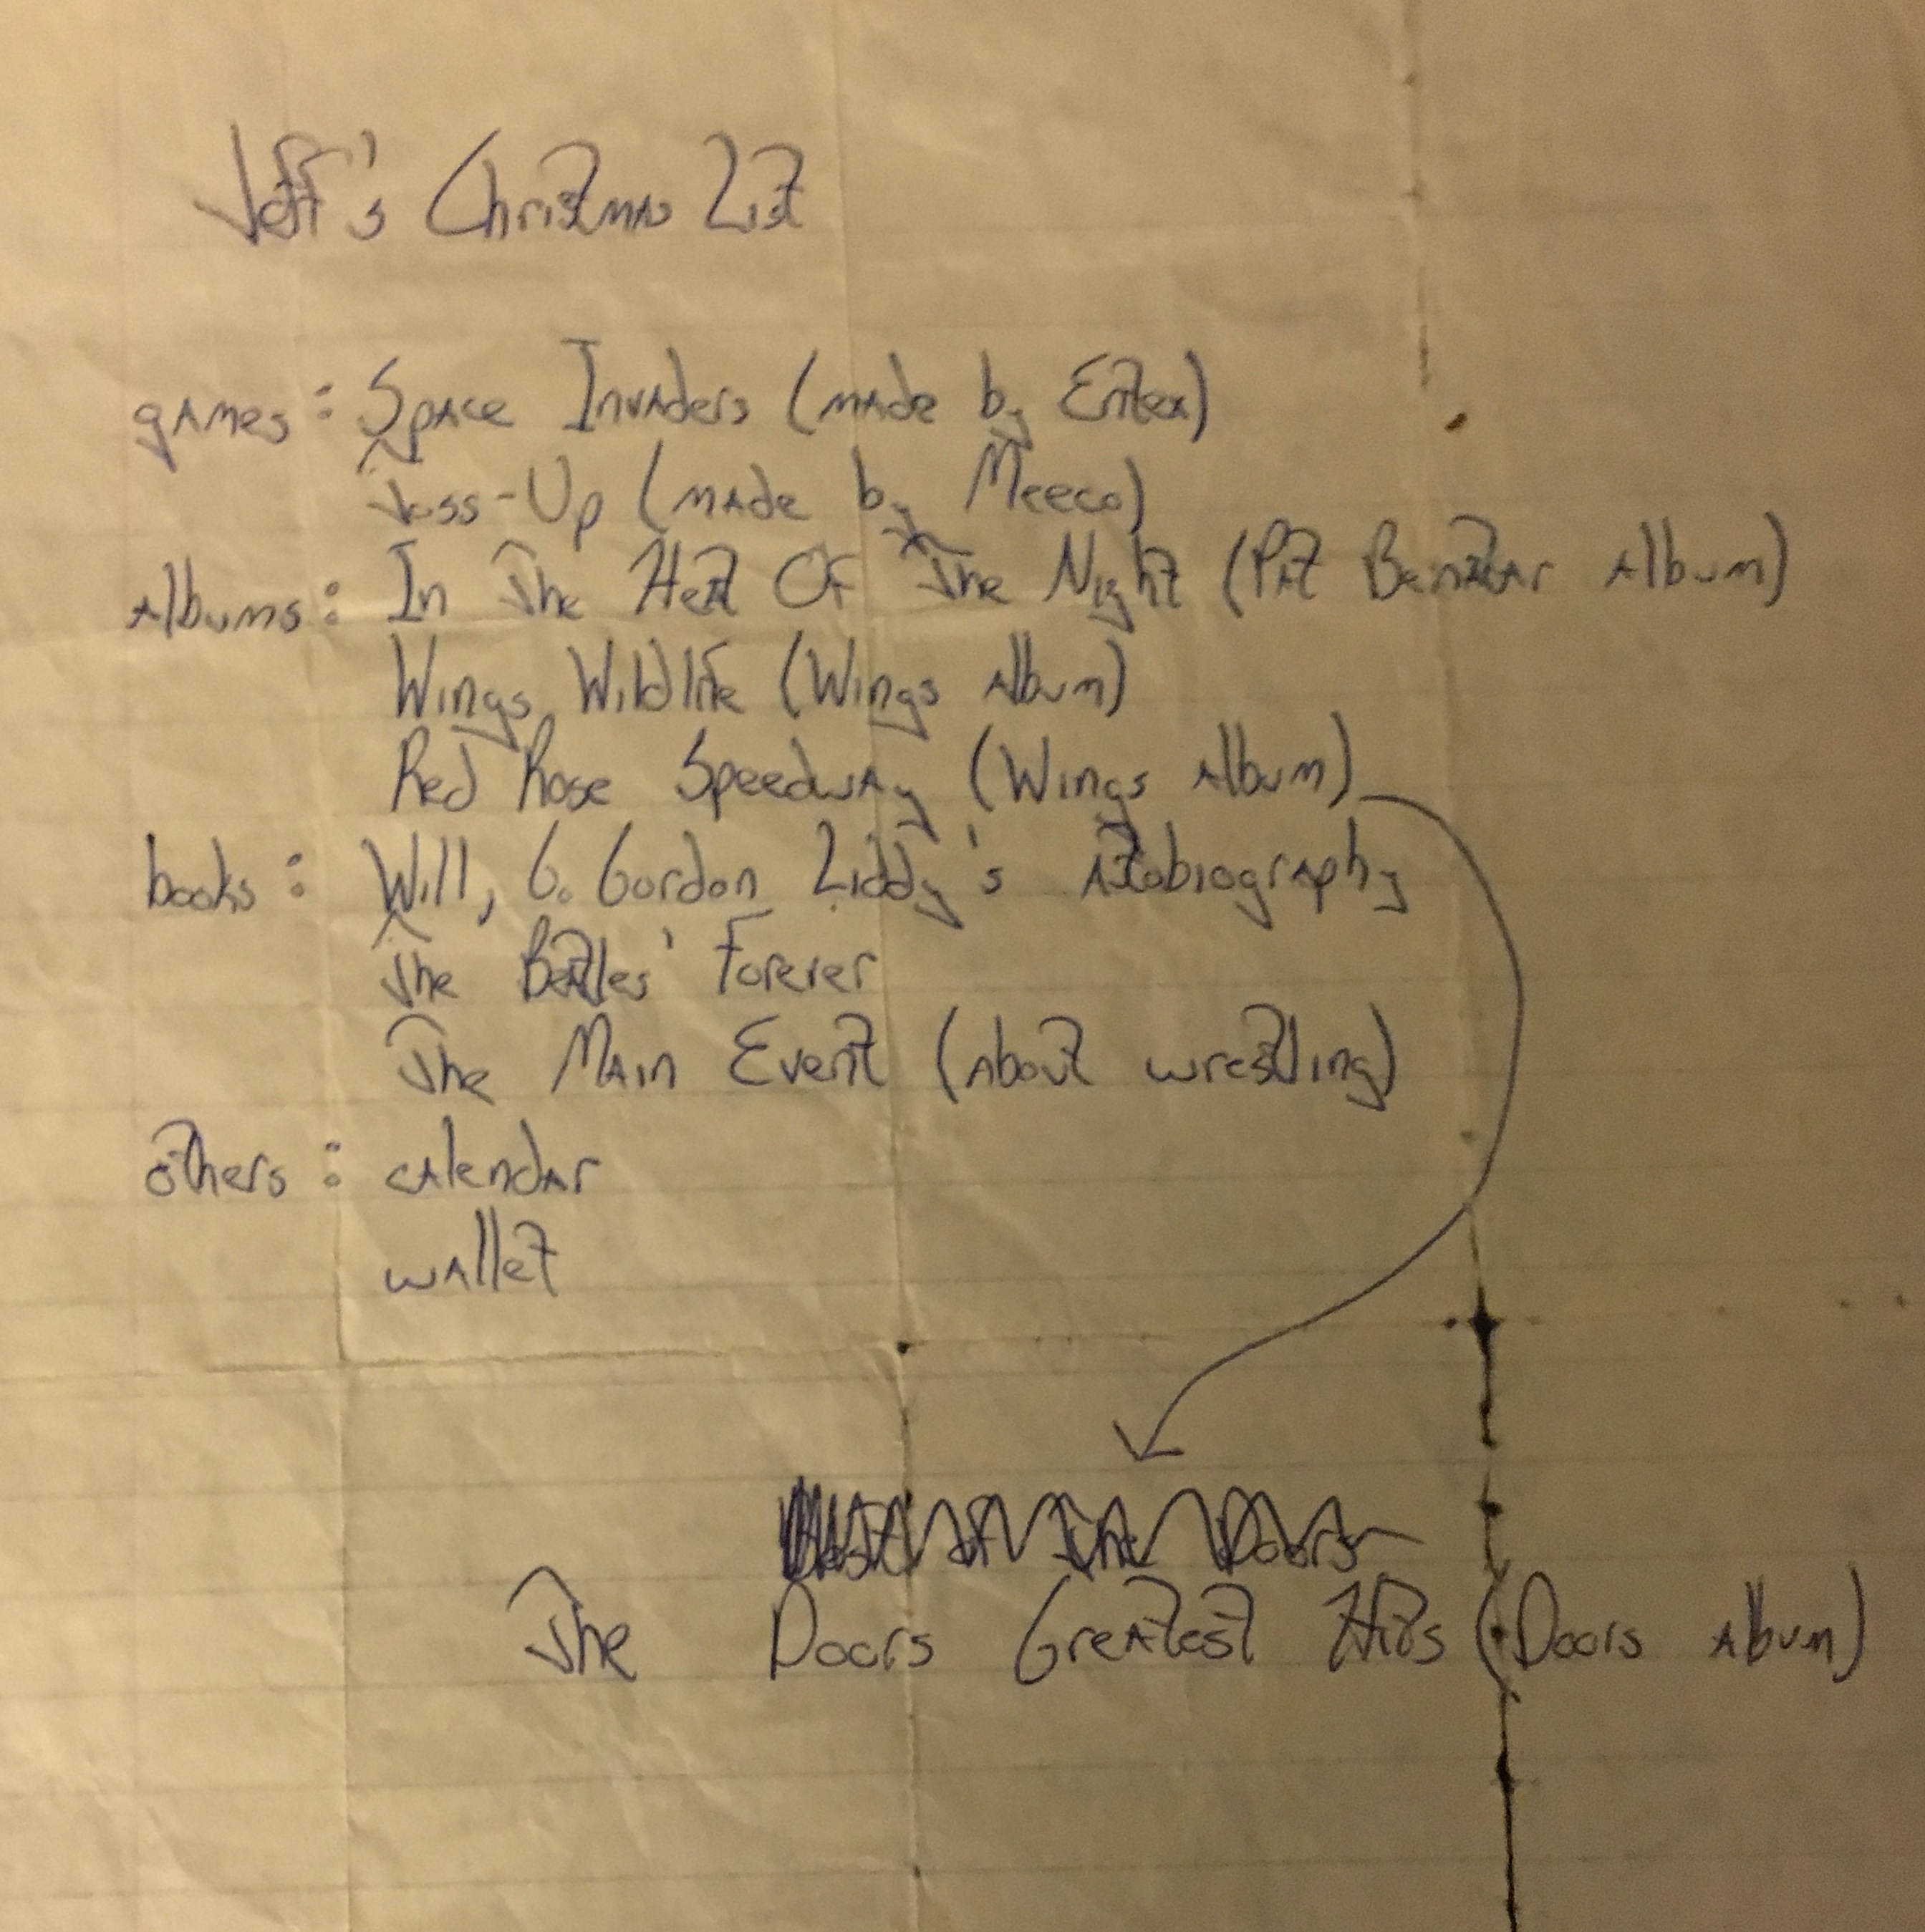 Jeff's Christmas List
games: Space Invaders (made by Entex)
Toss-Up (made by Meeco)
Albums: In The Heat Of The Night (Pat Benatar Album)
Wings Wildlife (Wings Album)
Red Rose Speedway (Wings Album)
books: Will, G. Gordon Liddy's Autobiography
The Beatles' Forever
The Main Event (About wrestling)
others: calendar
wallet
Best of The Doors
The Doors Greatest Hits (Doors Album)